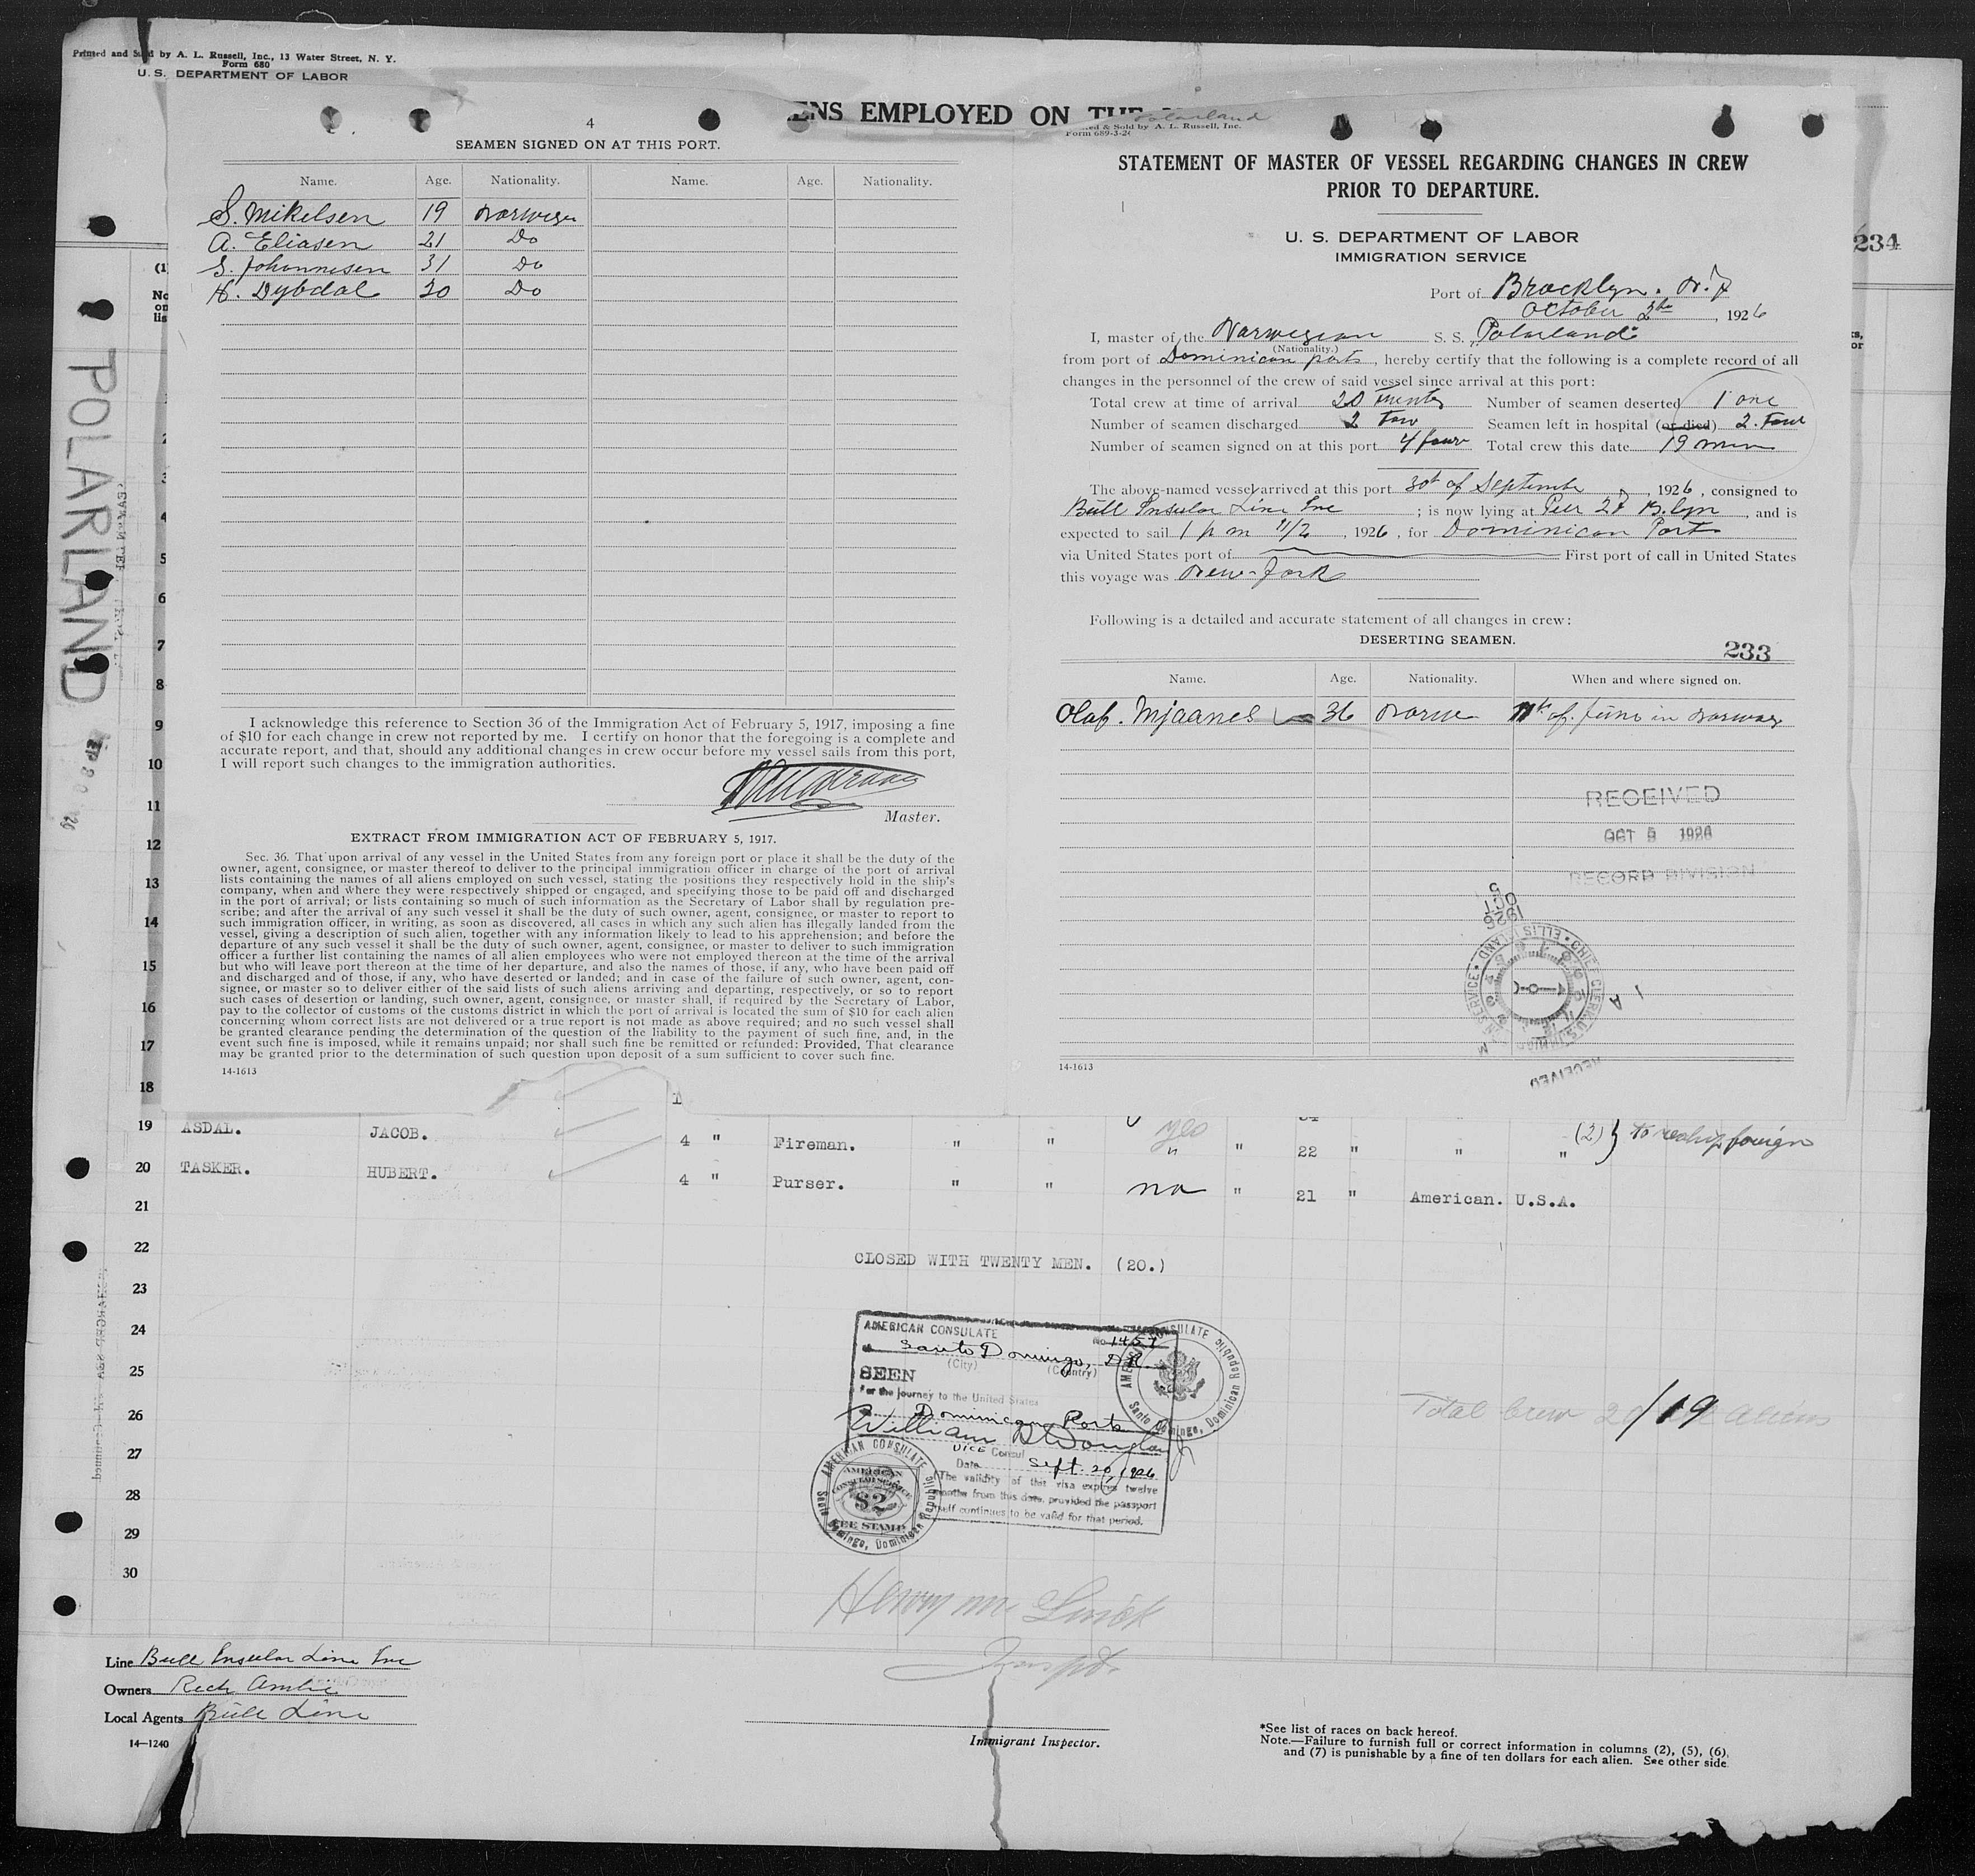 Printed and Sold by A. L. Russell, Inc., 13 Water Street, N. Y.
Form 680
U. S. DEPARTMENT OF LABOR
ENS EMPLOYED ON THE
Polarland
4
SEAMEN SIGNED ON AT THIS PORT.
Name. Age. Nationality. Name. Age. Nationality.
S. Mikelsen 19 Norwegn
A. Eliasen 21 Do
S. Johannesen 31 Do
H. Dybdal 30 Do
I acknowledge this reference to Section 36 of the Immigration Act of February 5, 1917, imposing a fine
of $10 for each change in crew not reported by me. I certify on honor that the foregoing is a complete and
accurate report, and that, should any additional changes in crew occur before my vessel sails from this port,
I will report such changes to the immigration authorities.
Master.
EXTRACT FROM IMMIGRATION ACT OF FEBRUARY 5, 1917.
Sec. 36. That upon arrival of any vessel in the United States from any foreign port or place it shall be the duty of the
owner, agent, consignee, or master thereof to deliver to the principal immigration officer in charge of the port of arrival
lists containing the names of all aliens employed on such vessel, stating the positions they respectively hold in the ship's
company, when and where they were respectively shipped or engaged, and specifying those to be paid off and discharged
in the port of arrival; or lists containing so much of such information as the Secretary of Labor shall by regulation pre-
scribe; and after the arrival of any such vessel it shall be the duty of such owner, agent, consignee, or master to report to
such immigration officer, in writing, as soon as discovered, all cases in which any such alien has illegally landed from the
vessel, giving a description of such alien, together with any information likely to lead to his apprehension; and before the
departure of any such vessel it shall be the duty of such owner, agent, consignee, or master to deliver to such immigration
officer a further list containing the names of all alien employees who were not employed thereon at the time of the arrival
but who will leave port thereon at the time of her departure, and also the names of those, if any, who have been paid off
and discharged and of those, if any, who have deserted or landed; and in case of the failure of such owner, agent, con-
signee, or master so to deliver either of the said lists of such aliens arriving and departing, respectively, or so to report
such cases of desertion or landing, such owner, agent, consignee, or master shall, if required by the Secretary of Labor,
pay to the collector of customs of the customs district in which the port of arrival is located the sum of $10 for each alien
concerning whom correct lists are not delivered or a true report is not made as above required; and no such vessel shall
be granted clearance pending the determination of the question of the liability to the payment of such fine, and, in the
event such fine is imposed, while it remains unpaid; nor shall such fine be remitted or refunded: Provided, That clearance
may be granted prior to the determination of such question upon deposit of a sum sufficient to cover such fine.
14-1613
ed & Sold by A. L. Russell, Inc.
Form 689-3-26
STATEMENT OF MASTER OF VESSEL REGARDING CHANGES IN CREW
PRIOR TO DEPARTURE.
U. S. DEPARTMENT OF LABOR
IMMIGRATION SERVICE
234
Port of Brooklyn. N.Y
October 2th, 1926
I, master of the Norwegian S. S. "Polarland"
(Nationality.)
from port of Dominican ports, hereby certify that the following is a complete record of all
changes in the personnel of the crew of said vessel since arrival at this port:
Total crew at time of arrival 20 Twenty Number of seamen deserted 1 one
Number of seamen discharged 2 Tow Seamen left in hospital (or died) 2. Tow
Number of seamen signed on at this port 4 four Total crew this date 19 men
The above-named vessel arrived at this port 30th of Septembr, 1926, consigned to
Bull Insular Line Inc; is now lying at Pier 27 B.lyn, and is
expected to sail 1 p m, 1926, for Dominican Ports
via United States port of First port of call in United States
this voyage was New-York
Following is a detailed and accurate statement of all changes in crew:
DESERTING SEAMEN.
233
Name. Age. Nationality. When and where signed on.
Olaf. Mjaanes 36 Norw 11th of. June in Norway
RECEIVED
OCT 5 1926
RECORD DIVISION
OCT 5 1926
CHIEF CLERK U.S. IMMIGRATION SERVICE • ELLIS ISLAND •
RECEIVED
14-1613
POLARLAND
1
2
3
4
5
6
7
8
9
10
11
12
13
14
15
16
17
18
19 ASDAL. JACOB. 4 " Fireman. " " yes " 22 " " " (2) } to reship foreign
20 TASKER. HUBERT. 4 " Purser. " " no " 21 " American. U.S.A.
21
22 CLOSED WITH TWENTY MEN. (20.)
23
24
25
26
27
28
29
30
AMERICAN CONSULATE No 1457
Santo Domingo, D.R.
(City) (Country)
SEEN
For the journey to the United States
Dominican Ports
William B Douglas Jr
VICE Consul
Date Sept. 20, 1926
(The validity of this visa expires twelve
months from this date, provided the passport
itself continues to be valid for that period.
AMERICAN CONSULATE
Santo Domingo, Dominican Republic
AMERICAN CONSULATE
Santo Domingo, Dominican Republic
AMERICAN
CONSULAR SERVICE
$2
FEE STAMP
Total Crew 20/19 aliens
Henry
Inspt.
Line Bull Insular Line Inc
Owners
Local Agents Bull Line
14—1240
Immigrant Inspector.
*See list of races on back hereof.
Note.—Failure to furnish full or correct information in columns (2), (5), (6),
and (7) is punishable by a fine of ten dollars for each alien. See other side